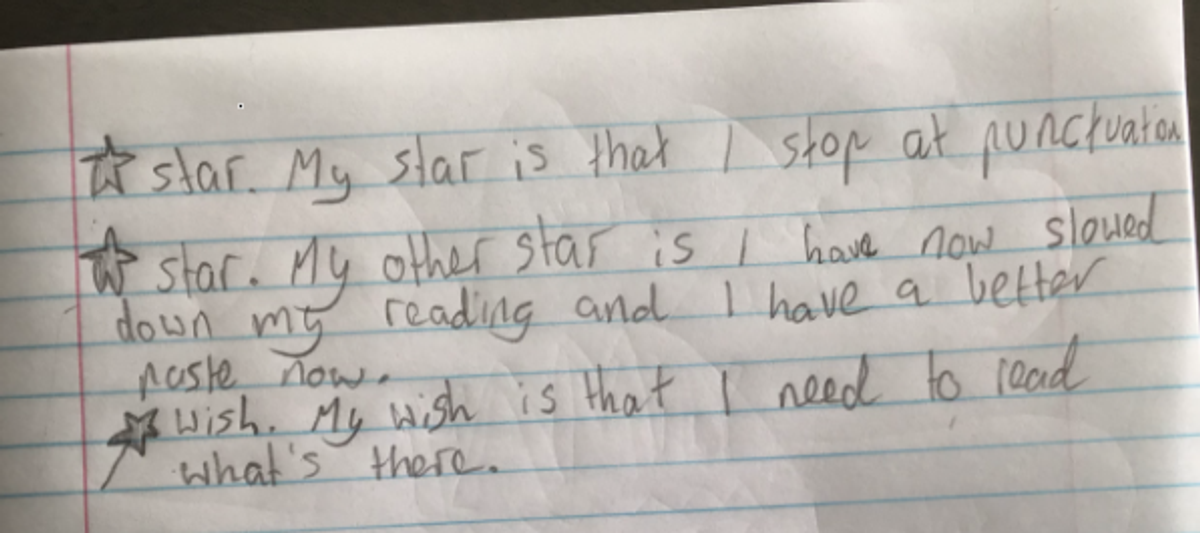 ☆ star. My star is that I stop at punctuation
☆ star. My other star is I have now slowed
down my reading and I have a better
paste now.
☆ wish. My wish is that I need to read
what's there.